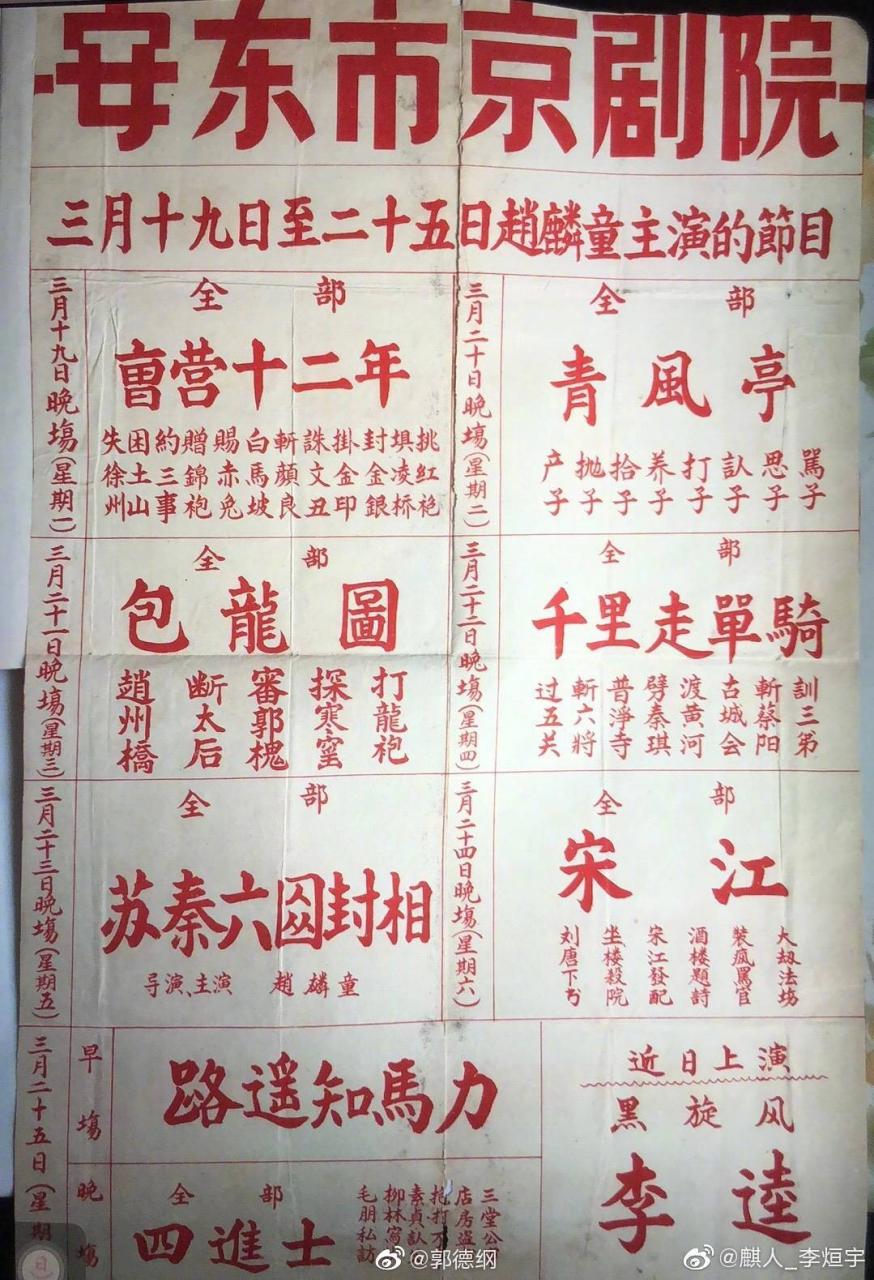 安东市京剧院
三月十九日至二十五日趙麟童主演的節目
三月十九日晚塲(星期一)
全部
曺营十二年
失徐州
困土山
約三事
贈錦袍
賜赤兔
白馬坡
斬顔良
誅文丑
掛金印
封金銀
埧凌桥
挑红袍
三月二十日晚塲(星期二)
全部
青風亭
产子
抛子
拾子
养子
打子
訞子
思子
罵子
三月二十一日晚塲(星期三)
全部
包龍圖
趙州橋
断太后
審郭槐
探寒窑
打龍袍
三月二十二日晚塲(星期四)
全部
千里走單騎
过五关
斬六將
普淨寺
劈秦琪
渡黄河
古城会
斬蔡阳
訓三弟
三月二十三日晚塲(星期五)
全部
苏秦六囯封相
导演、主演 趙麟童
三月二十四日晚塲(星期六)
全部
宋江
刘唐下书
坐楼殺院
宋江發配
酒楼題詩
裝瘋罵官
大刼法塲
三月二十五日(星期
早塲
路遥知馬力
晚塲
全部
四進士
毛朋私訪
柳林寫
素貞訞
抱打不
店房盗
三堂公
近日上演
黑旋风
李逵
@郭德纲
@麒人_李烜宇